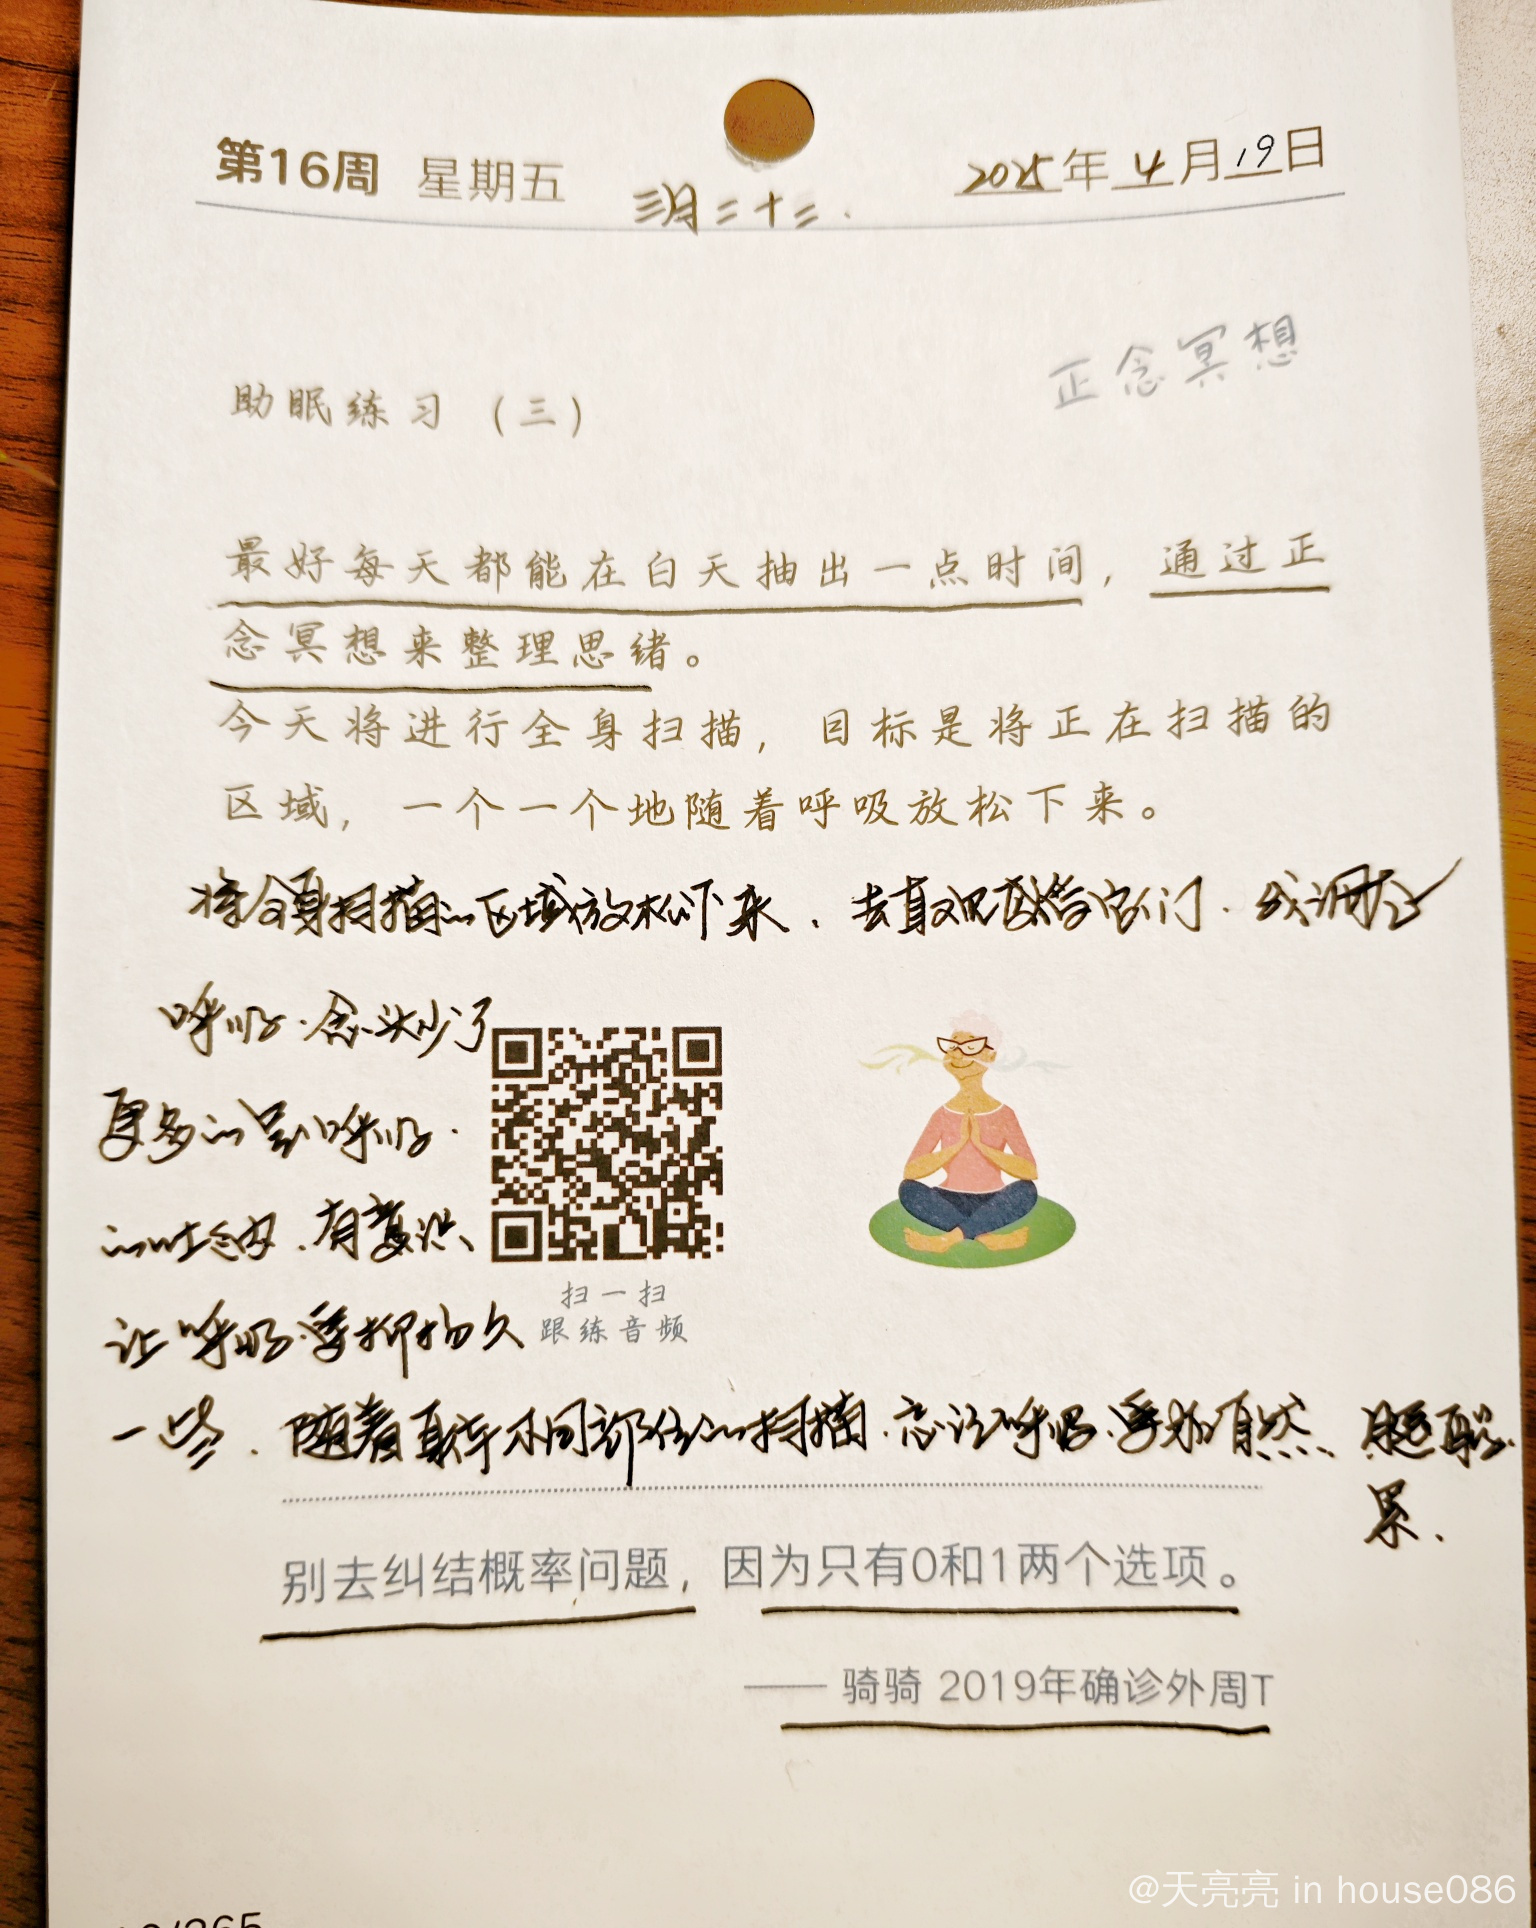 第16周 星期五
三月二十二.
2025年4月19日
正念冥想
助眠练习（三）
最好每天都能在白天抽出一点时间，通过正
念冥想来整理思绪。
今天将进行全身扫描，目标是将正在扫描的
区域，一个一个地随着呼吸放松下来。
将全身扫描的区域放松下来.去直观感恰它们.
呼吸.念头少了
更多的是呼吸.
的吐纳.有意识、
让呼吸
一些.随着身体不同部位的扫描.忘记呼吸、
累.
扫一扫
跟练音频
别去纠结概率问题，因为只有0和1两个选项。
——骑骑 2019年确诊外周T
/365
@天亮亮 in house086